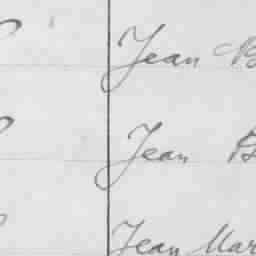 Jean B
Jean B
Jean Mar